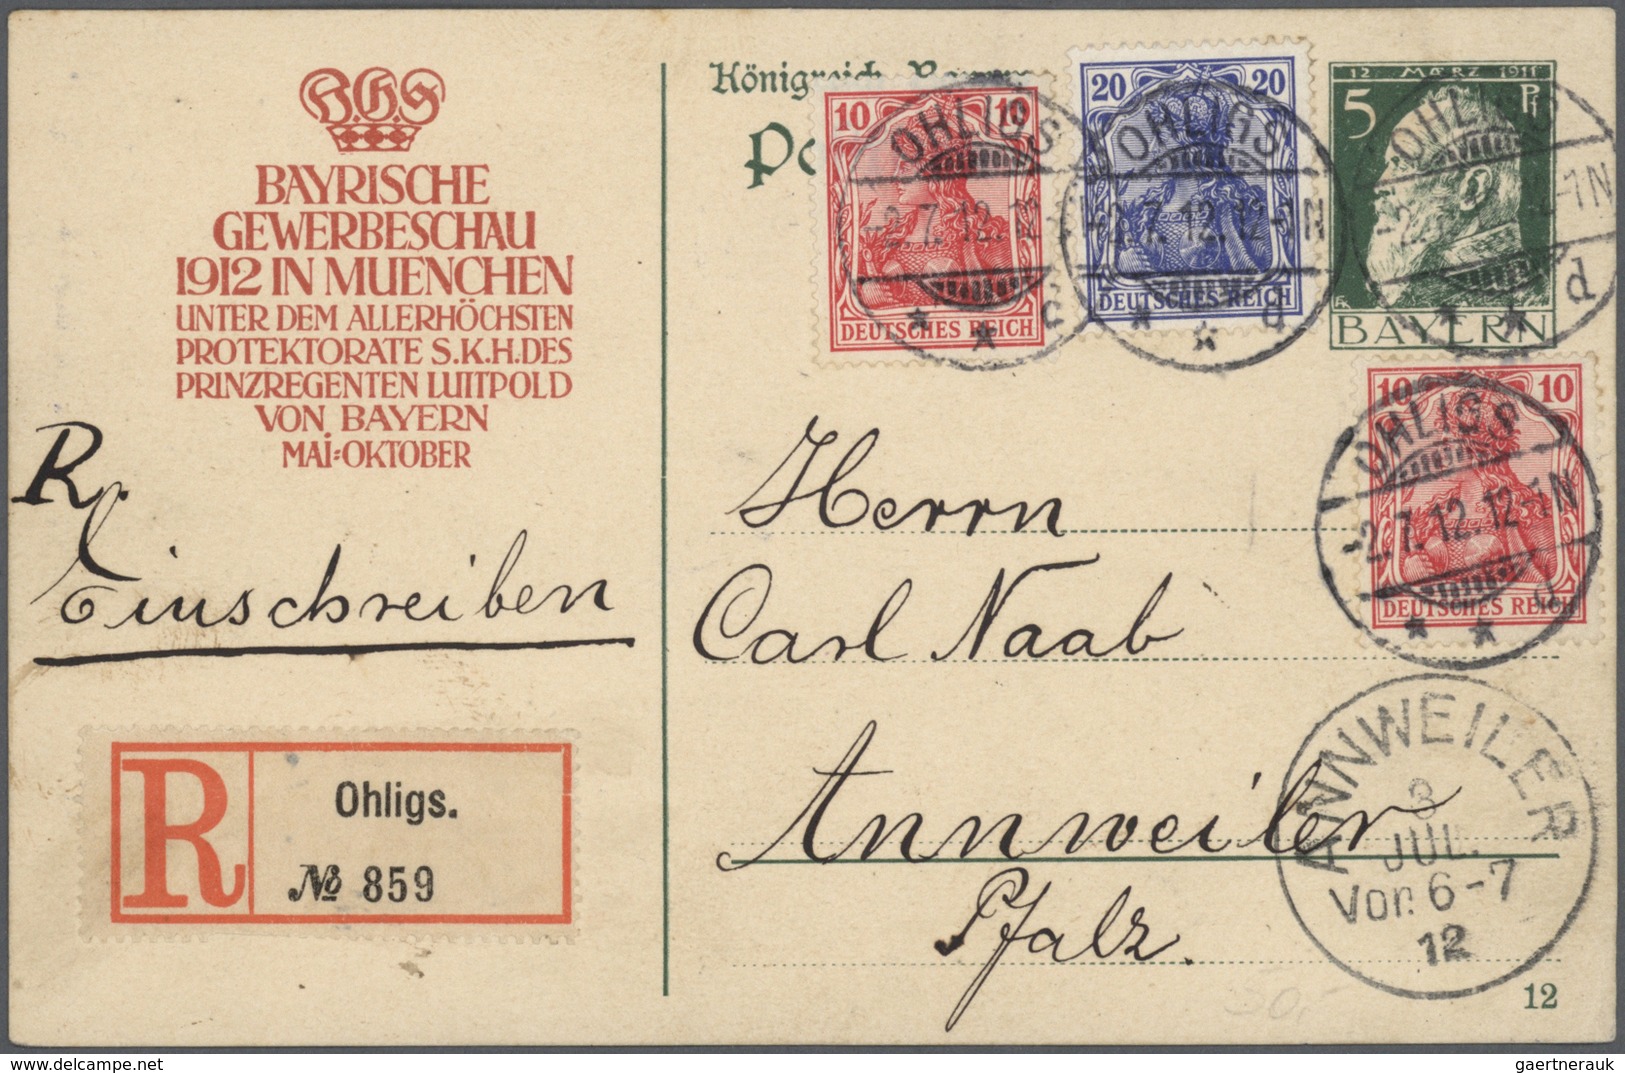 B.G.S
BAYRISCHE
GEWERBESCHAU
1912 IN MUENCHEN
UNTER DEM ALLERHÖCHSTEN
PROTEKTORATE S.K.H. DES
PRINZREGENTEN LUITPOLD
VON BAYERN
MAI-OKTOBER
R.
Einschreiben
R
Ohligs.
№ 859
Königreich
10 10
DEUTSCHES REICH
20 20
DEUTSCHES REICH
12. MÄRZ 1911
5 Pf
BAYERN
10 10
DEUTSCHES REICH
OHLIGS
-2.7.12.12
OHLIGS
-2.7.12.12-1N
d
OHLIGS
12-1N
d
OHLIGS
-2.7.12.12-1N
Herrn
Carl Naab
Annweiler
Pfalz.
ANNWEILER
3
JUL.
Vor. 6-7
12
12
30,-
www.delcampe.net
gaertnerauk